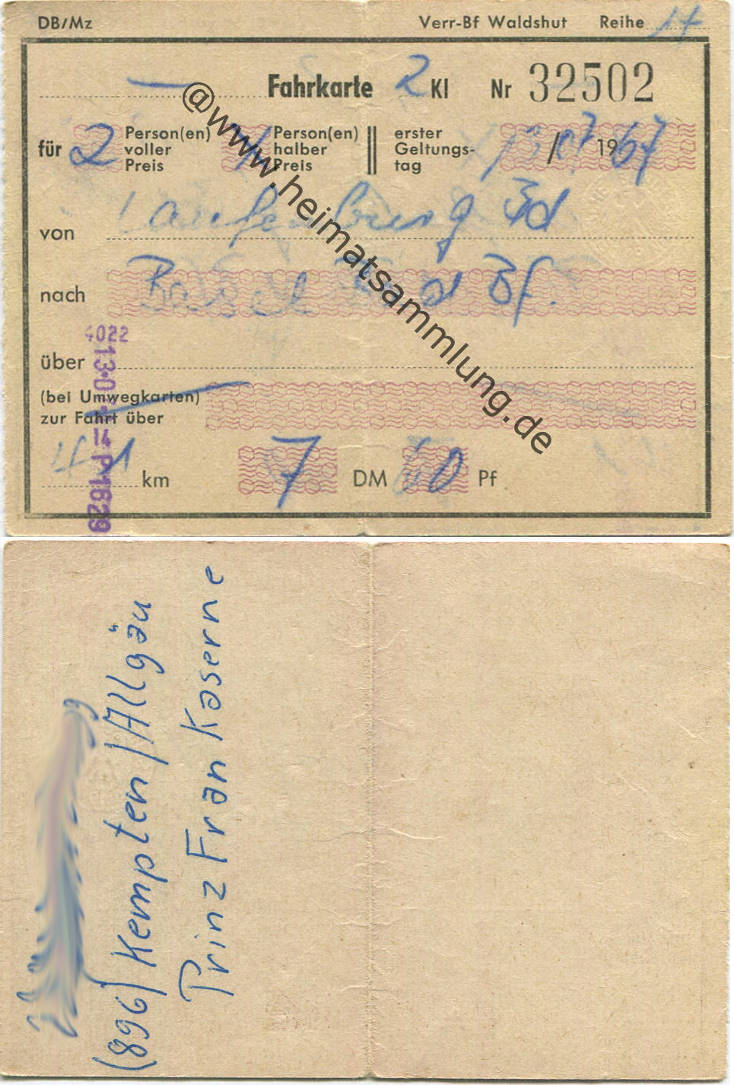 DB/Mz Verr-Bf Waldshut Reihe
— Fahrkarte 2 Kl Nr 32502
für 2 Person(en) voller Preis Person(en) halber Preis erster Geltungs-tag 13/07 1967
von Laufenburg Bd
nach Basel Bad Bf.
über
(bei Umwegkarten)
zur Fahrt über
41 km 7 DM 60 Pf
4022
P1629
@www.heimatsammlung.de
(896) Kempten/Allgäu
Prinz Fran Kaserne